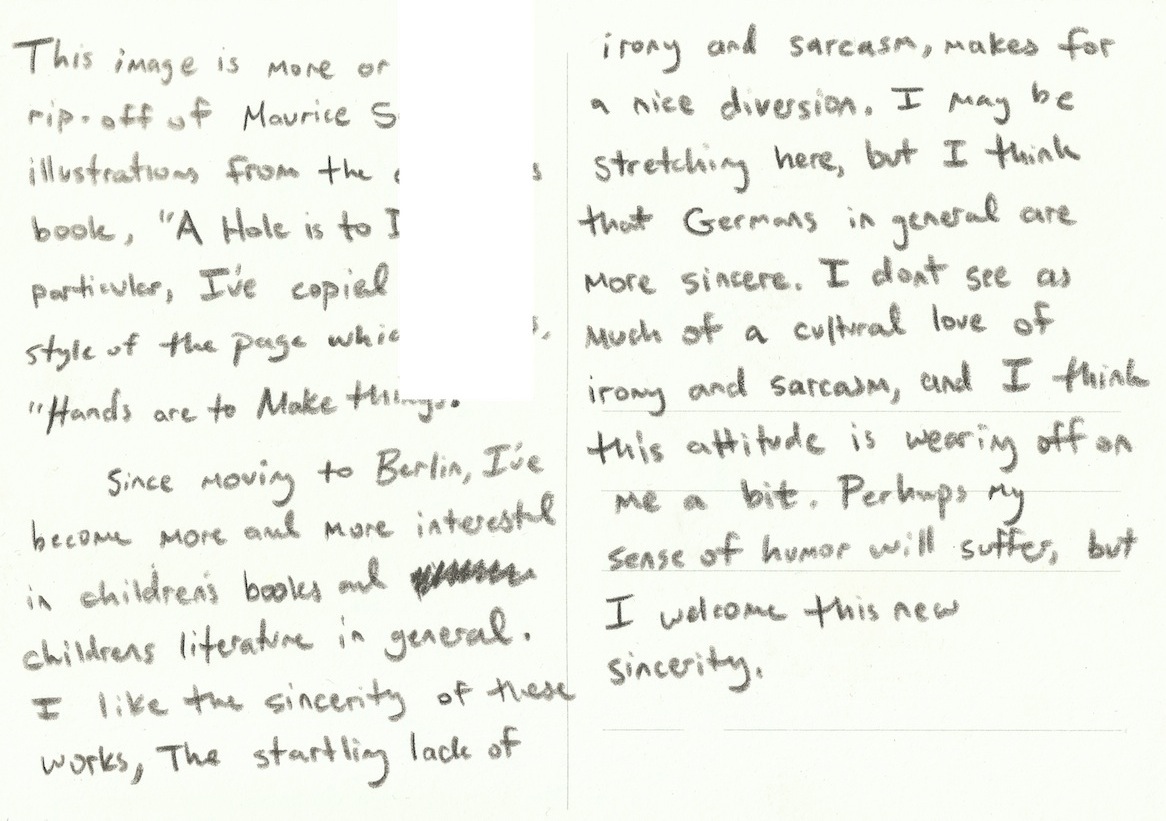 This image is more or
rip-off of Maurice S
illustrations from the
book, "A Hole is to
particular, I've copied
style of the page
"Hands are to Make things."
Since moving to Berlin, I've
become more and more interested
in children's books and
childrens literature in general.
I like the sincerity of these
works, The startling lack of
irony and sarcasm, makes for
a nice diversion. I may be
stretching here, but I think
that Germans in general are
more sincere. I dont see as
much of a cultural love of
irony and sarcasm, and I think
this attitude is wearing off on
me a bit. Perhaps my
sense of humor will suffer, but
I welcome this new
sincerity.